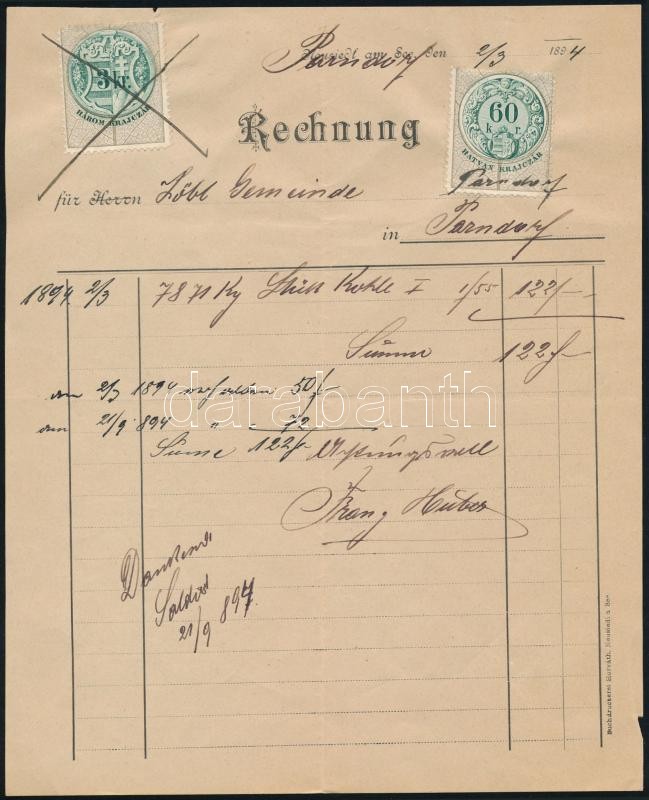 3 kr.
HÁROM KRAJCZÁR
Neusiedl am See, den 2/3 1894
Parndorf
60
k r.
HATVAN KRAJCZÁR
Rechnung
für Herrn Löbl Gemeinde Parndorf
in Parndorf
1894 2/3 7871 Kg Stück Kohle I 1/55 122/—
Summe 122 f—
am 2/3 1894 erhalten 50 f
am 21/9 894 " 72
Sume 122 f Achtungsvoll
Franz Huber
Dankend
Saldirt
21/9 894.
darabanth
Buchdruckerei Horváth, Neusiedl a See